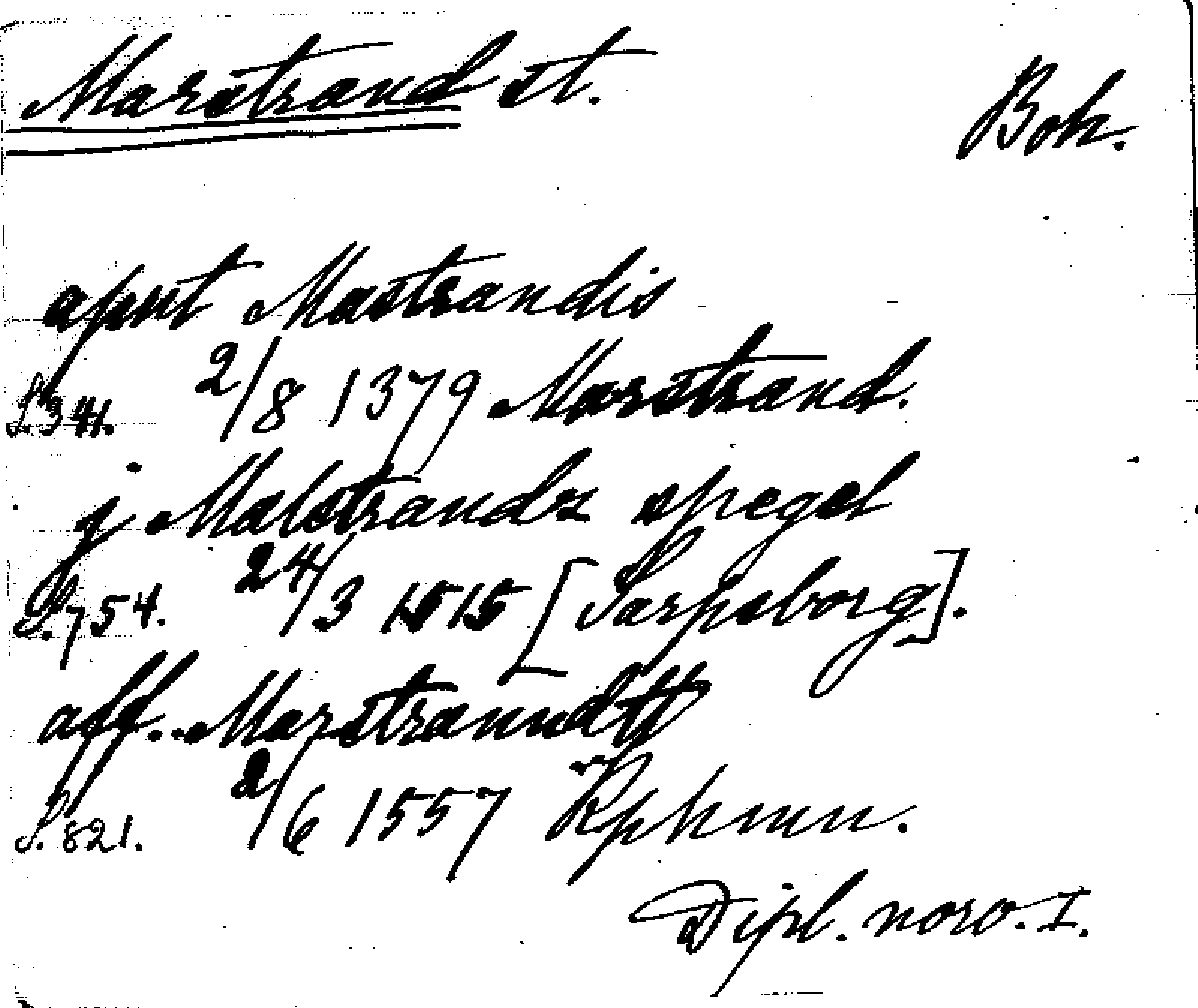 Marstrand st.
Boh.
aput Mastrandis
S. 341. 2/8 1379 Marstrand.
j Malstrandz spegel
S. 754. 24/3 1515 [Sarpsborg].
aff Marstranndtt
S. 821. 2/6 1557 Kphmn.
Dipl. norv. I.